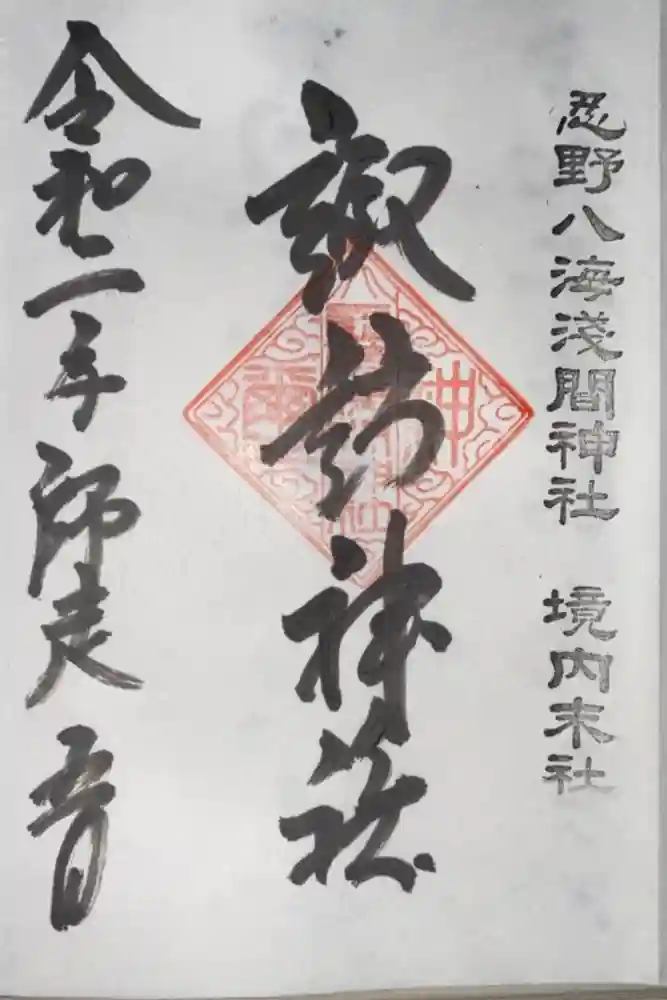 忍野八海淺間神社 境内末社
諏訪神社
令和二年師走五日